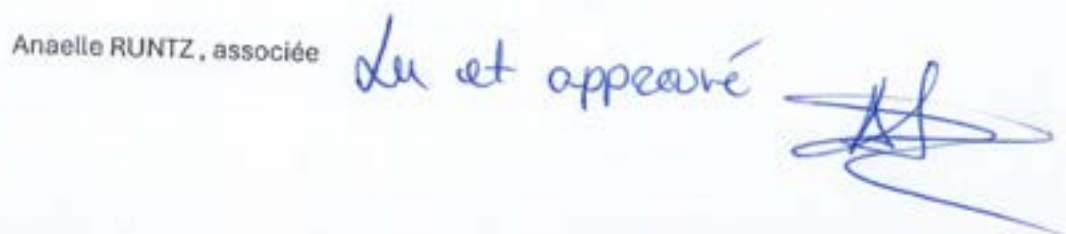 Anaelle RUNTZ, associée Lu et approuvé